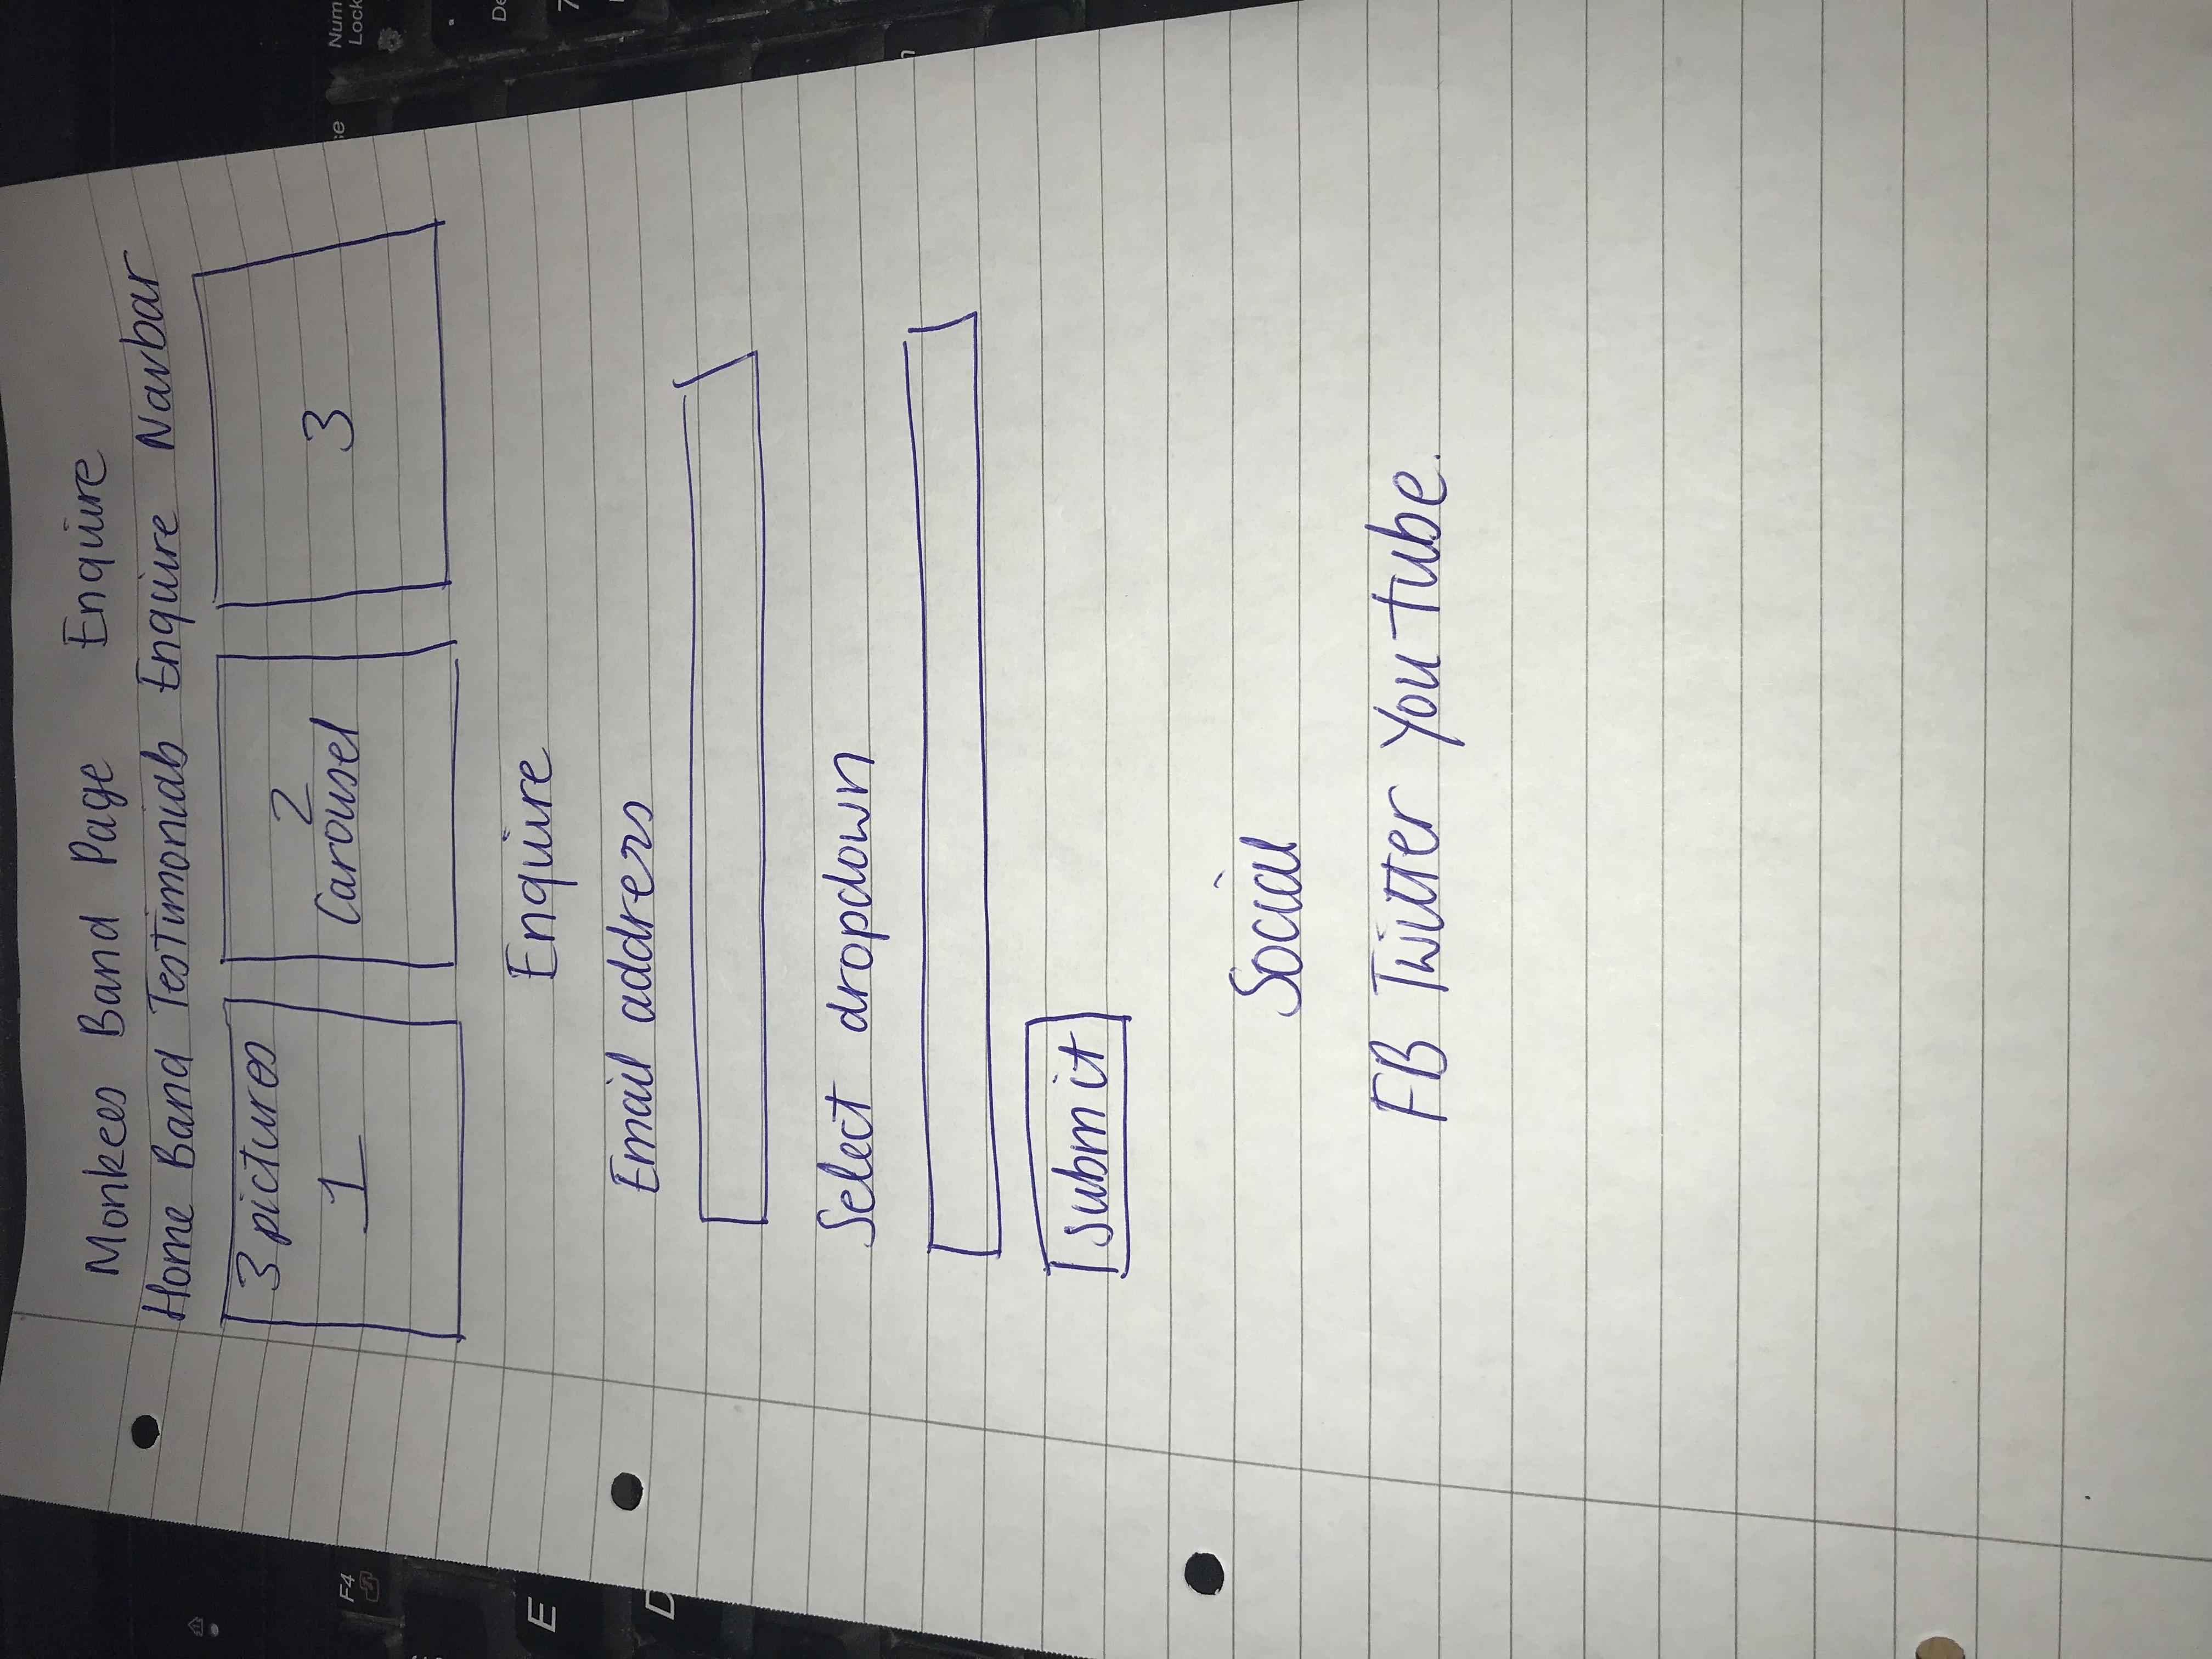 Monkees Band Page Enquire
Home Band Testimonials Enquire Navbar
3 pictures
1
2
Carousel
3
Enquire
Email address
Select dropdown
submit
Social
FB Twitter Youtube.
F4
E
D
Num
Lock
7